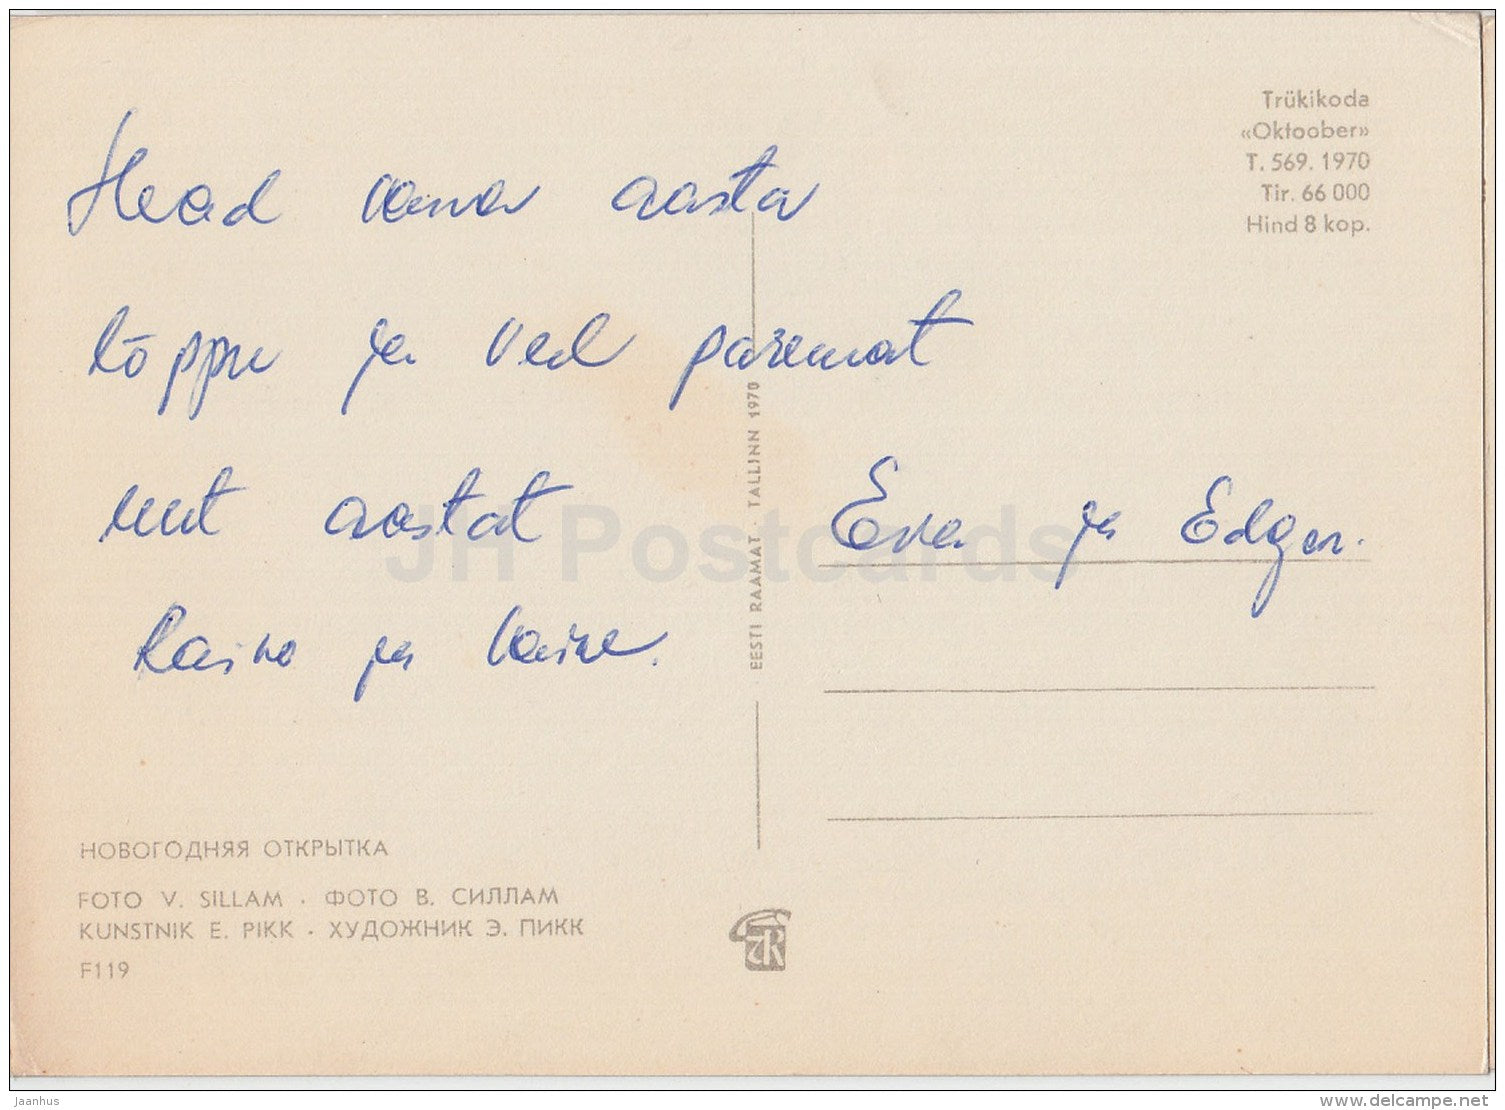 Trükikoda
«Oktoober»
T. 569. 1970
Tir. 66 000
Hind 8 kop.
Head vana aasta
lõppu ja veel paremat
uut aastat
Eva ja Edgar.
Raivo ja Vaike.
EESTI RAAMAT · TALLINN 1970
JH Postcards
НОВОГОДНЯЯ ОТКРЫТКА
FOTO V. SILLAM · ФОТО В. СИЛЛАМ
KUNSTNIK E. PIKK · ХУДОЖНИК Э. ПИКК
F119
Jaanhus
www.delcampe.net